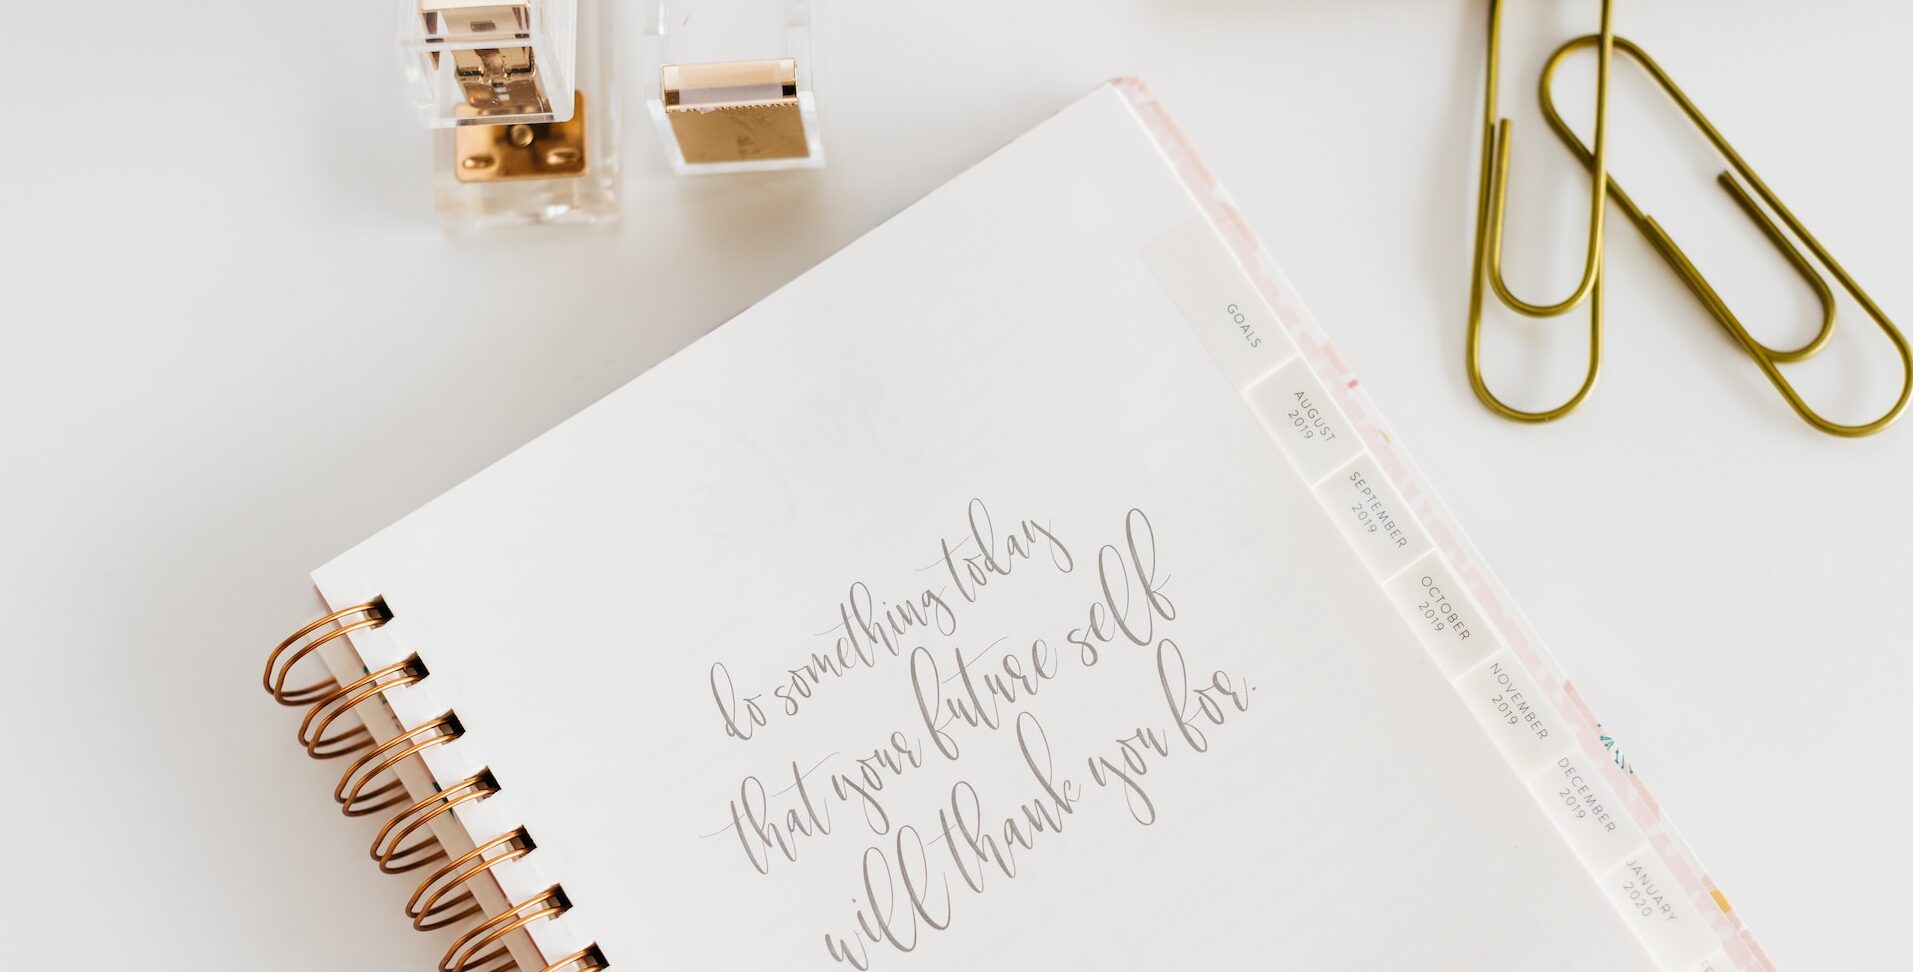 do something today
that your future self
will thank you for.
GOALS
AUGUST
2019
SEPTEMBER
2019
OCTOBER
2019
NOVEMBER
2019
DECEMBER
2019
JANUARY
2020